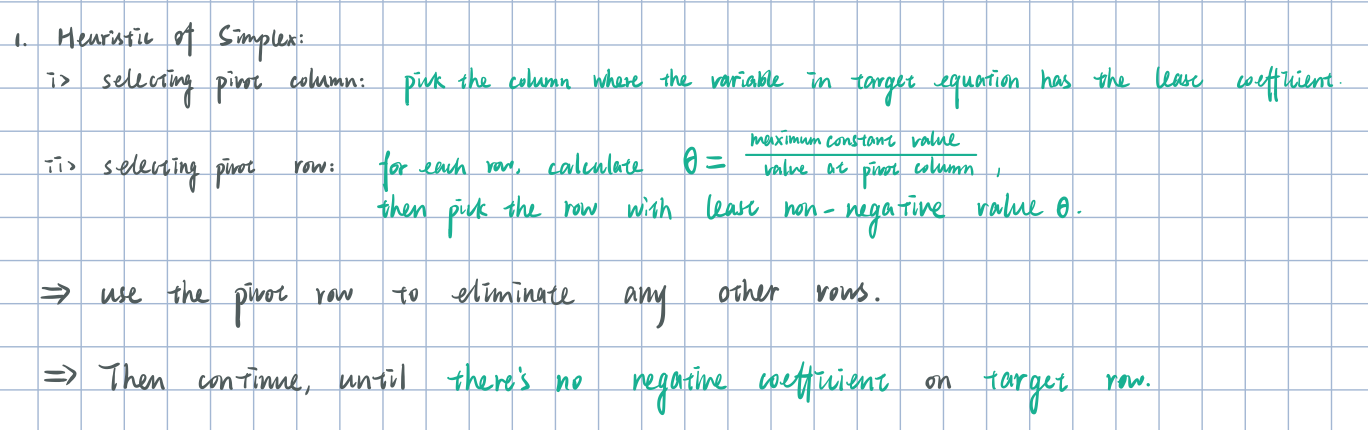 1. Heuristic of Simplex:
i> selecting pivot column: pick the column where the variable in target equation has the least coefficient.
ii> selecting pivot row: for each row, calculate θ = maximum constant value / value at pivot column,
then pick the row with least non-negative value θ.
⇒ use the pivot row to eliminate any other rows.
⇒ Then continue, until there's no negative coefficient on target row.